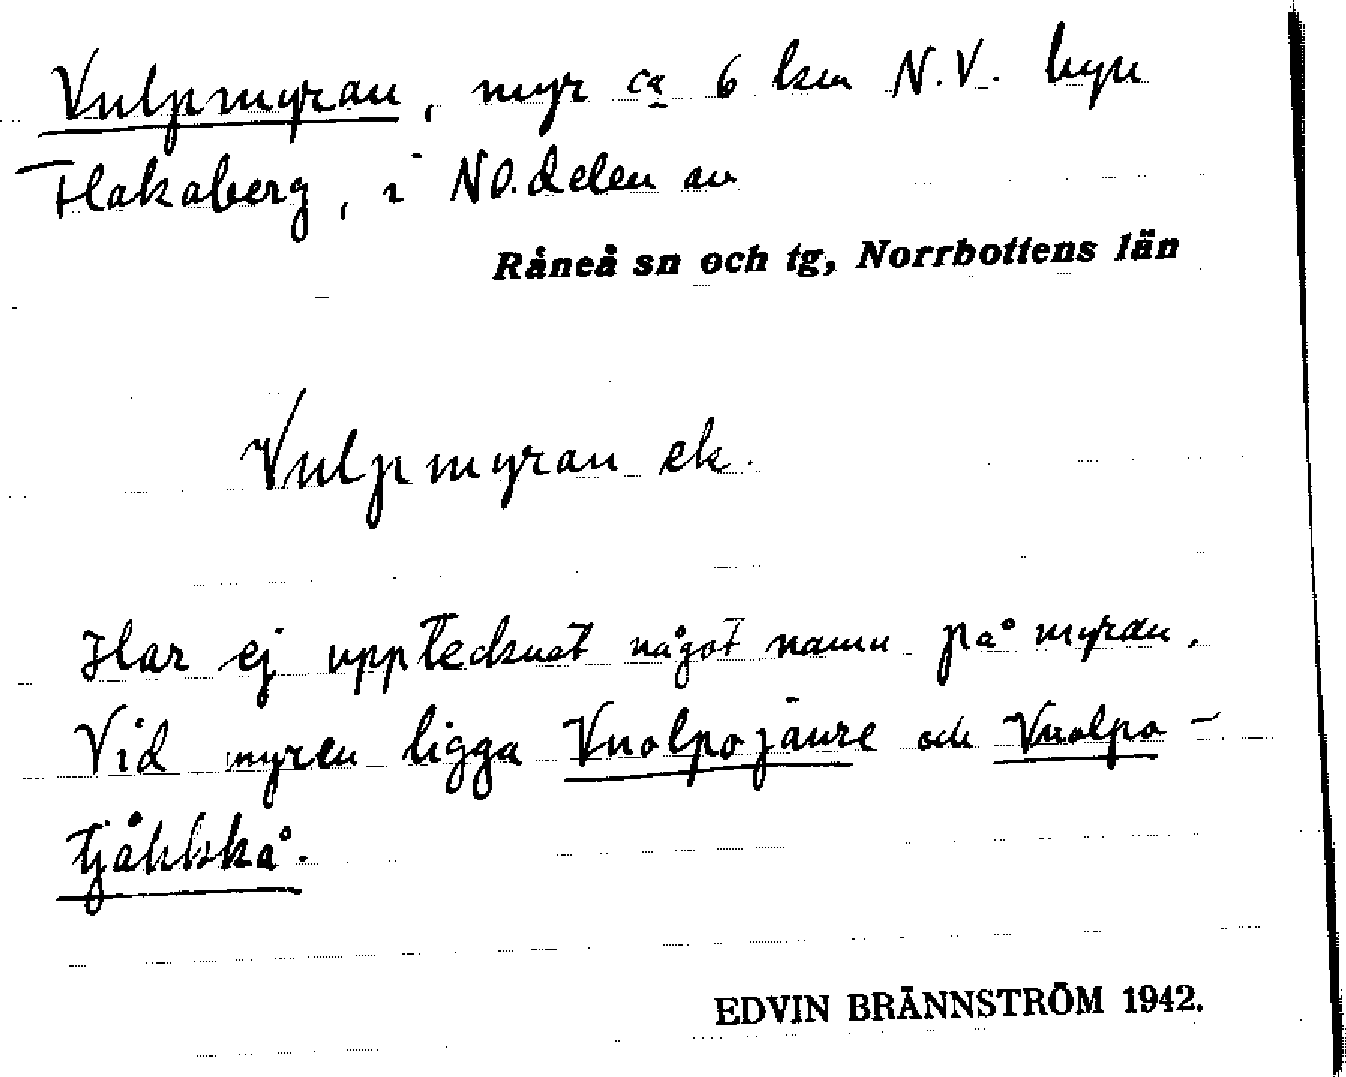 Vulpmyran, myr ca 6 km N.V. byn
Flakaberg, i NO. delen av
Råneå sn och tg, Norrbottens län
Vulpmyran ek.
Har ej upptecknat något namn på myran.
Vid myren ligga Vuolpojaure och Vuolpo-
tjåkkå.
EDVIN BRÄNNSTRÖM 1942.